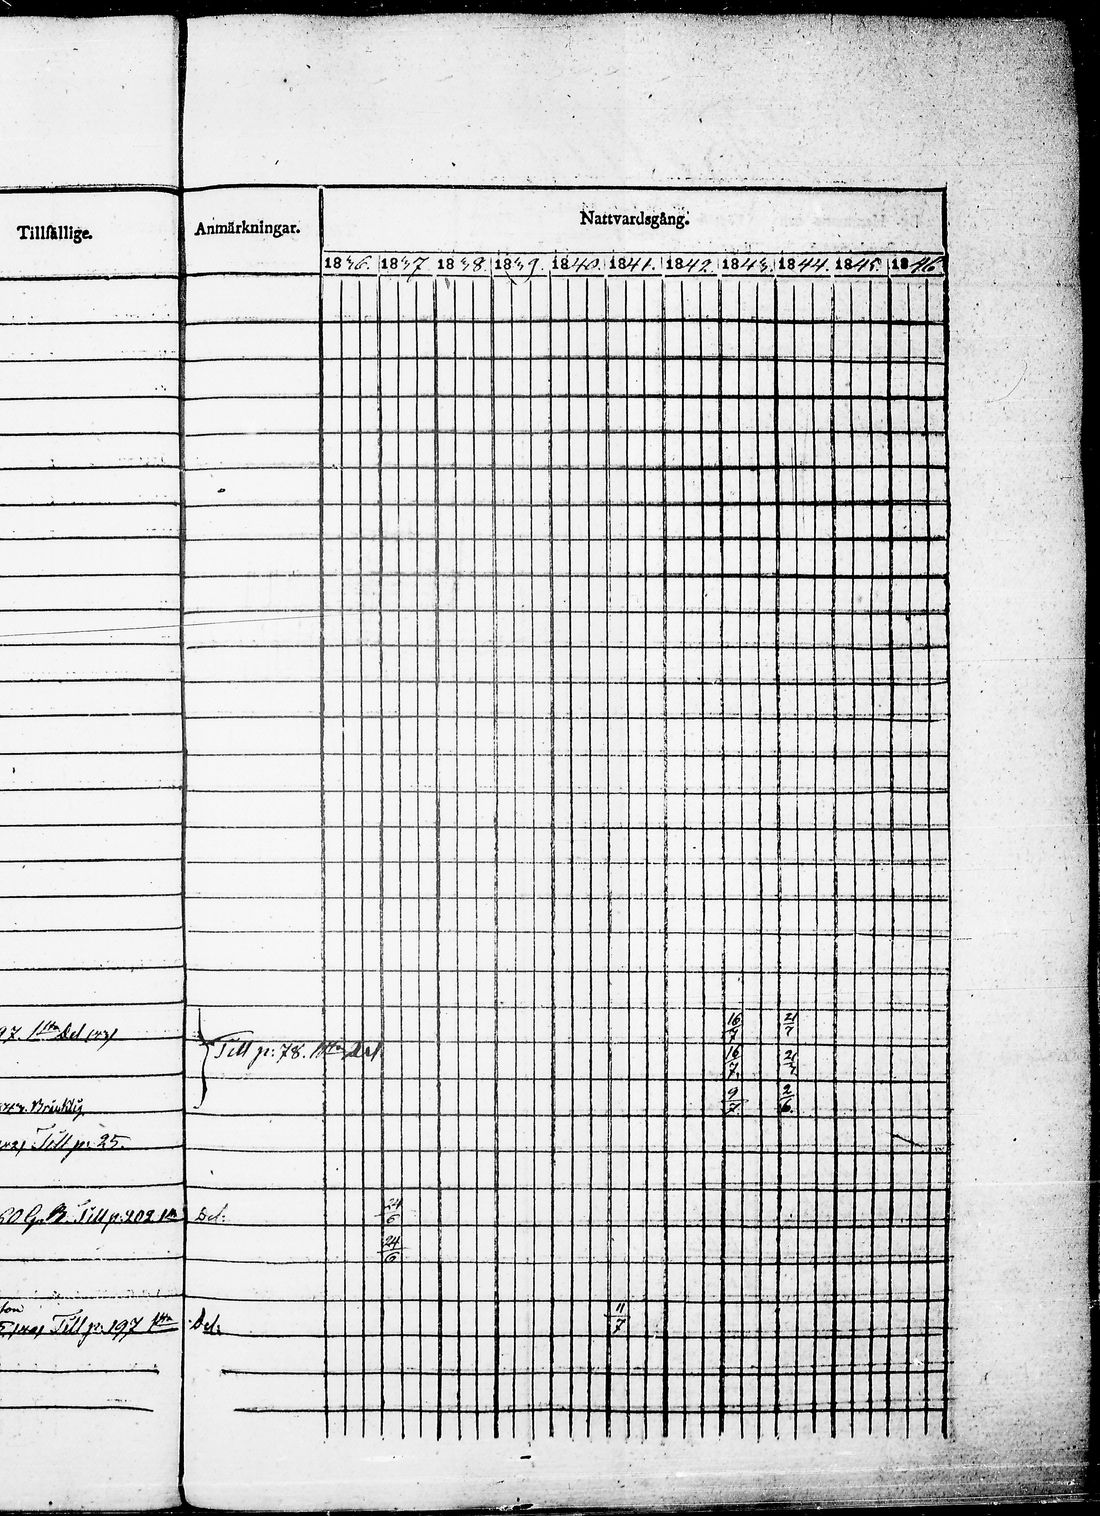 Tillfällige. Anmärkningar. Nattvardsgång.
1836. 1837 1838. 1839. 1840. 1841. 1842. 1843. 1844. 1845. 1846
16/7 21/7
97. 1sta Del
Till p: 78. 1sta Del.
16/7 2/7
9/7 2/6
Till p: 25.
24/6
Till p: 202 1sta Del:
24/6
11/7
Till p: 197 1sta Del: